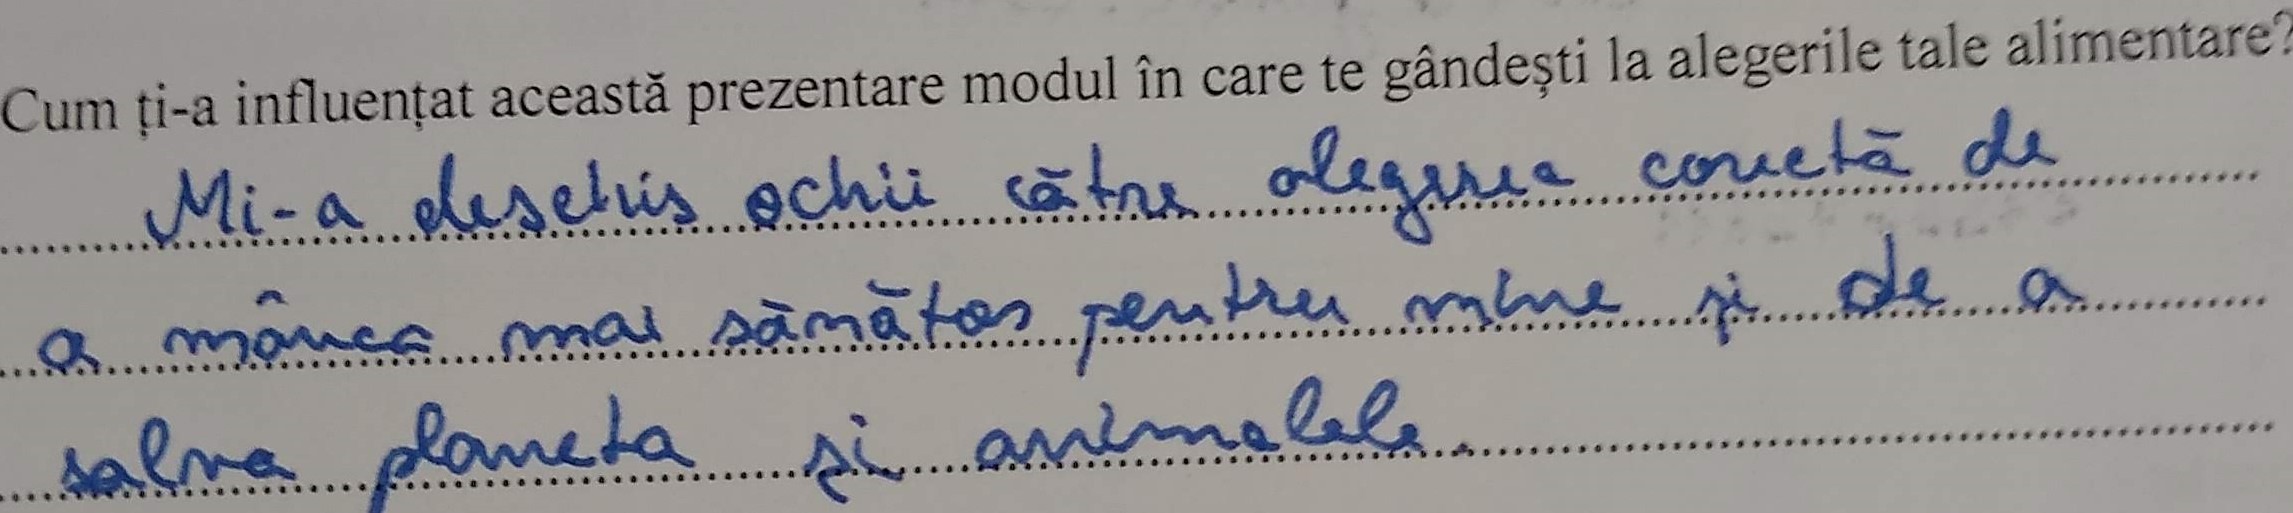 Cum ți-a influențat această prezentare modul în care te gândești la alegerile tale alimentare?
Mi-a deschis ochii către alegerea corectă de
a mânca mai sănătos pentru mine și de a
salva planeta și animalele.